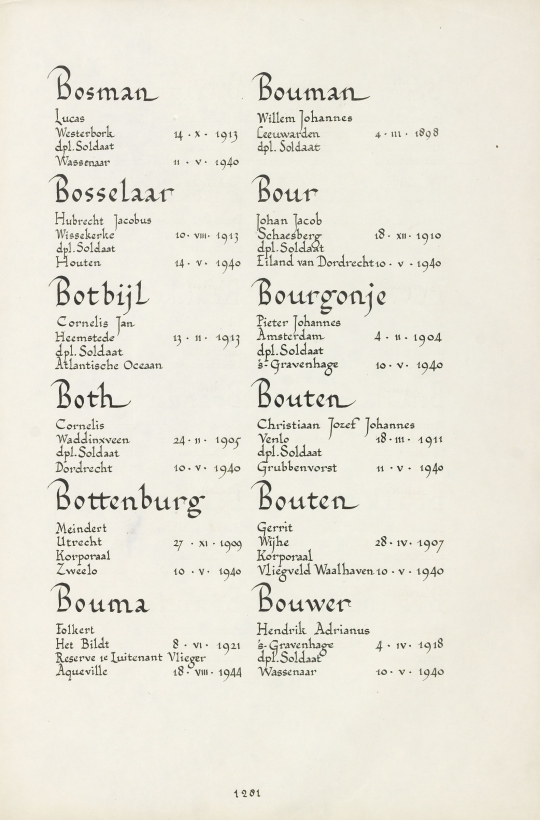 Bosman
Lucas
Westerbork 14 · X · 1913
dpl. Soldaat
Wassenaar 11 · V · 1940
Bosselaar
Hubrecht Jacobus
Wissekerke 10 · VIII · 1913
dpl. Soldaat
Houten 14 · V · 1940
Botbijl
Cornelis Jan
Heemstede 13 · II · 1913
dpl. Soldaat
Atlantische Oceaan
Both
Cornelis
Waddinxveen 24 · II · 1905
dpl. Soldaat
Dordrecht 10 · V · 1940
Bottenburg
Meindert
Utrecht 27 · XI · 1909
Korporaal
Zweelo 10 · V · 1940
Bouma
Folkert
Het Bildt 8 · VI · 1921
Reserve 1e Luitenant Vlieger
Aqueville 18 · VIII · 1944
Bouman
Willem Johannes
Leeuwarden 4 · III · 1898
dpl. Soldaat
Bour
Johan Jacob
Schaesberg 18 · XII · 1910
dpl. Soldaat
Eiland van Dordrecht 10 · V · 1940
Bourgonje
Pieter Johannes
Amsterdam 4 · II · 1904
dpl. Soldaat
's-Gravenhage 10 · V · 1940
Bouten
Christiaan Jozef Johannes
Venlo 18 · III · 1911
dpl. Soldaat
Grubbenvorst 11 · V · 1940
Bouten
Gerrit
Wijhe 28 · IV · 1907
Korporaal
Vliegveld Waalhaven 10 · V · 1940
Bouwer
Hendrik Adrianus
's-Gravenhage 4 · IV · 1918
dpl. Soldaat
Wassenaar 10 · V · 1940
1281